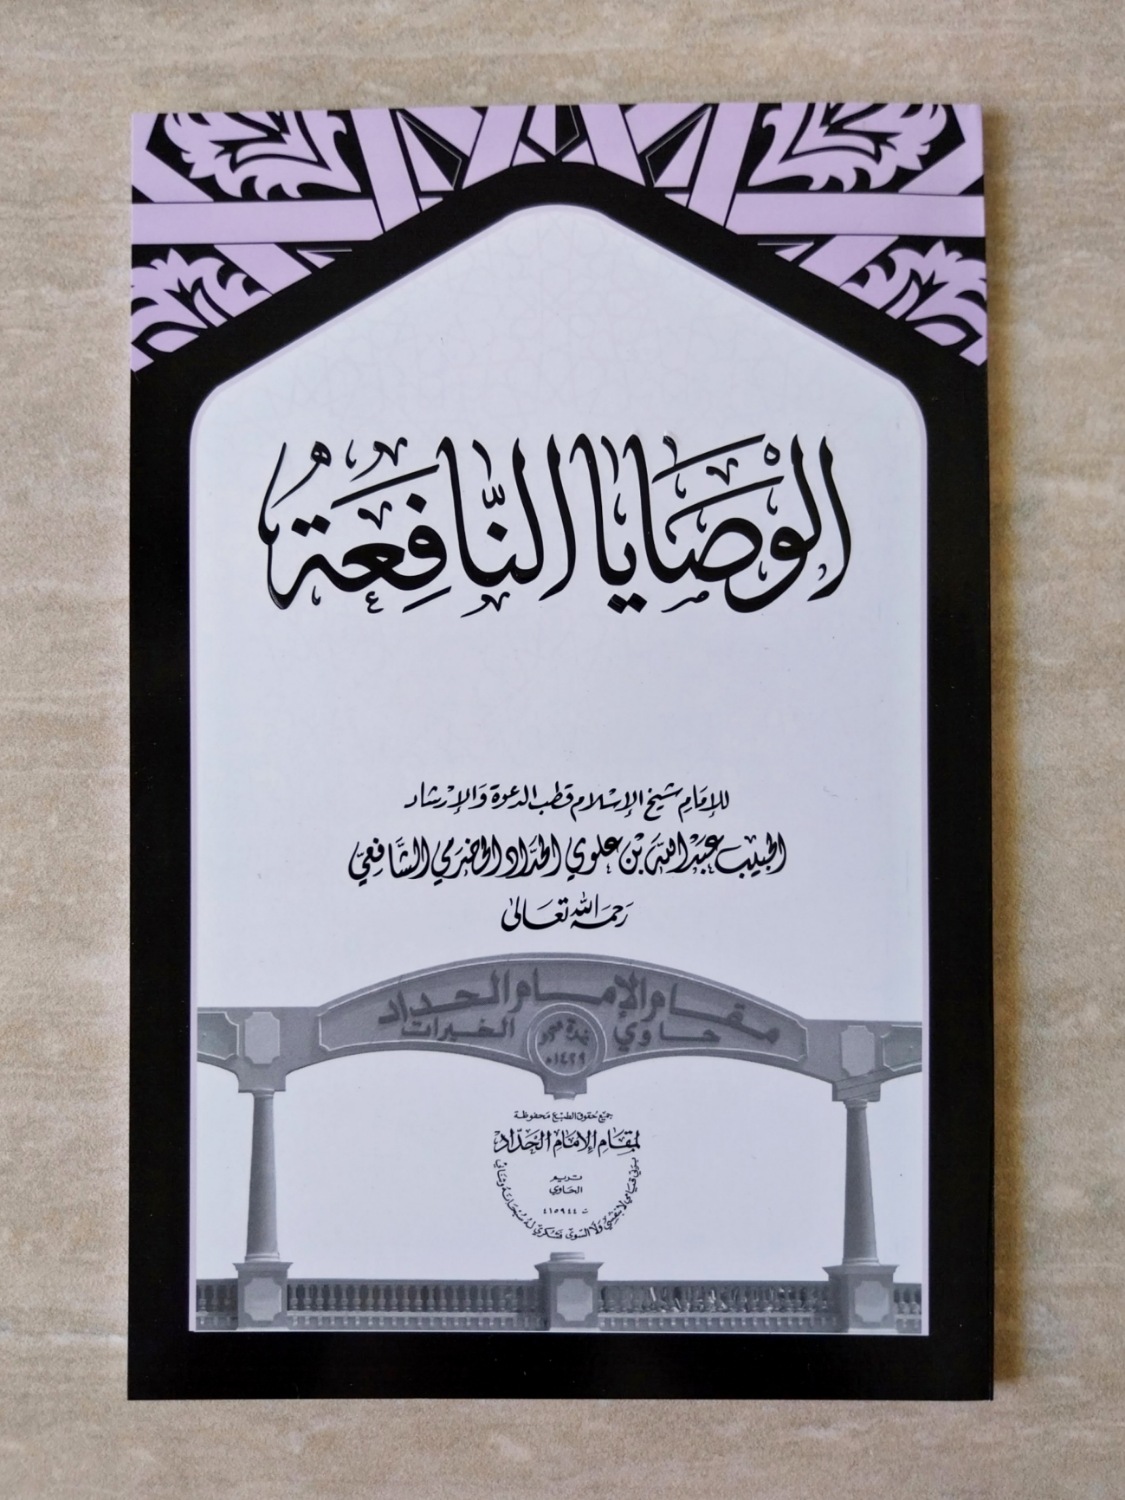 الوصايا النَّافِعَة
للإمَامِ شيخ الإسلام قطب الدعوة وَالإرشاد
الحبيب عَبْد اللَّه بْن علوي الحدّاد الحضرمي الشَّافِعيّ
رَحمَه الله تعَالى
مقام الإمام الحداد
حاوي الخيرات
١٤٢٩
جميع حقوق الطبع محفوظة
لمقام الإمام الحَدّاد
تريم
الحاوي
ت ٤١٥٩٤٤